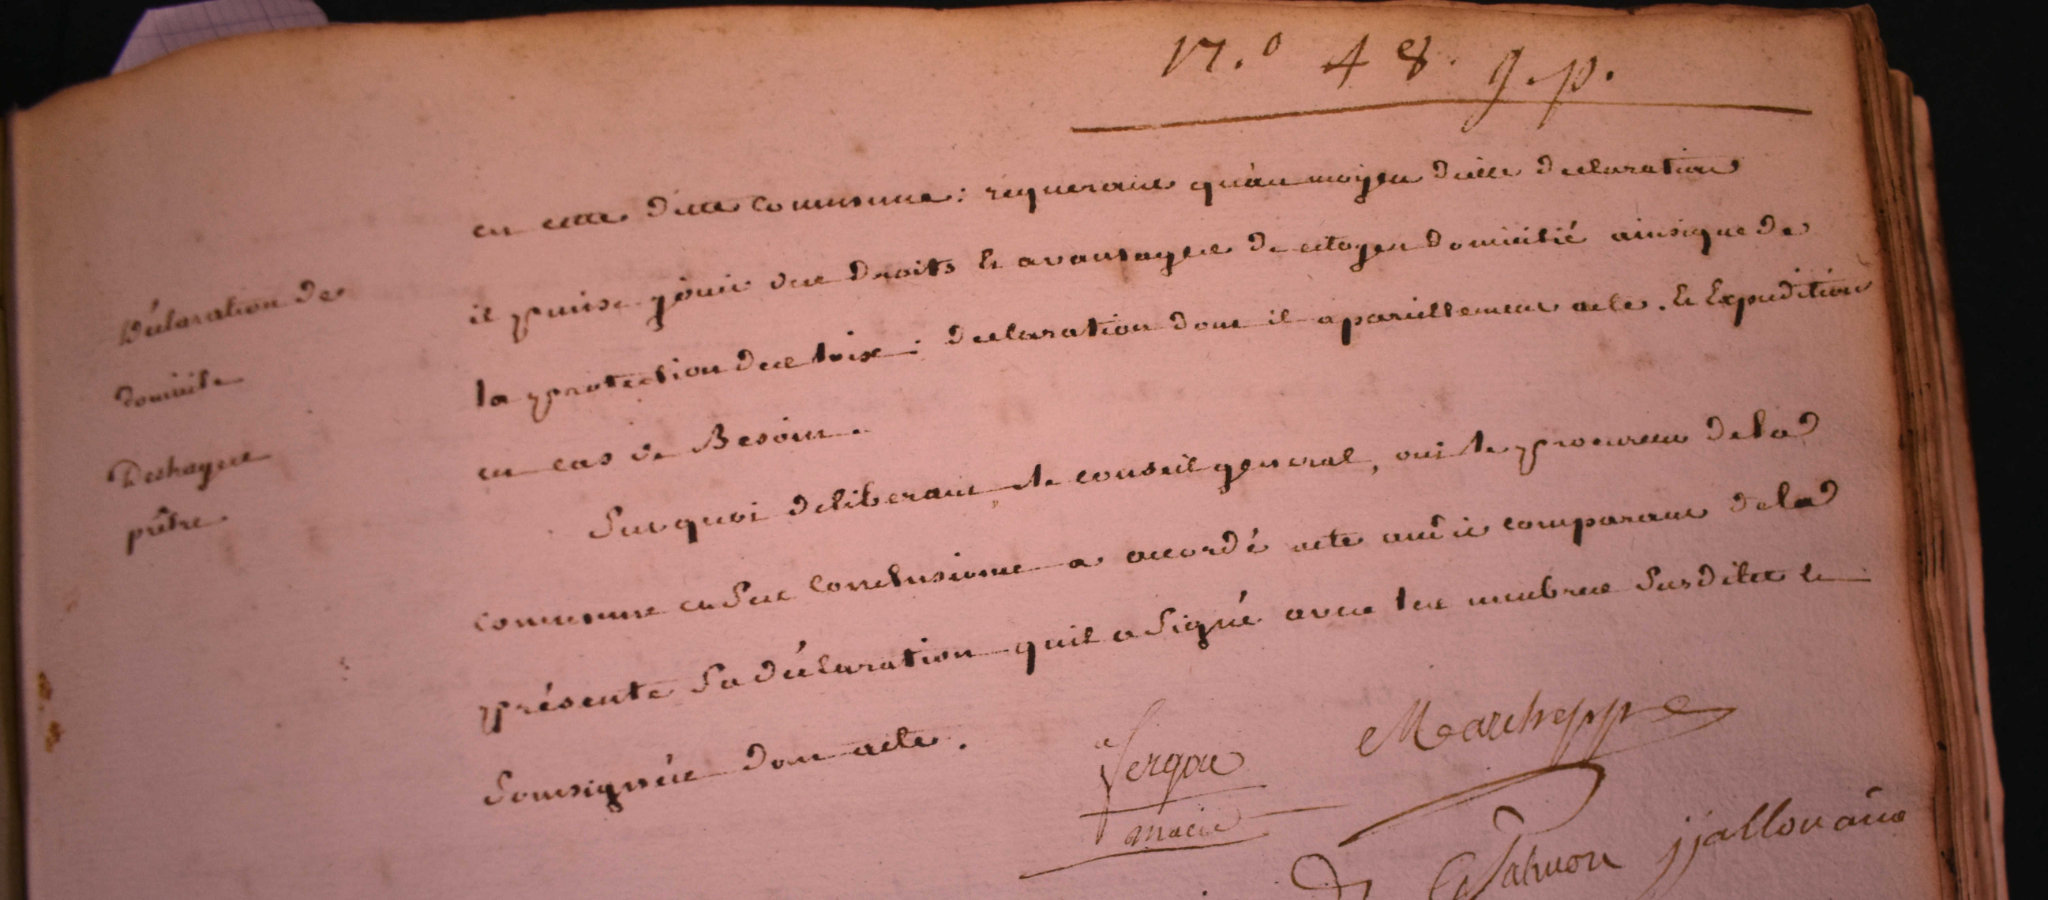 N.º 48. g.p.
en cette ditte commune: requerant qu'au moyen d'icelle declaration
il puise jouir des droits et avantages de citoyen domicilié ainsique de
la protection des loix: declaration dont il a pareillement acte. Et Expedition
en cas de Besoin.
Sur quoi deliberant le conseil general, oui le procureur de la
commune en ses conclusions a accordé acte audit comparant de la
présente sa déclaration quil a signé avec les membres susdites et
soussignés dont acte.
Déclaration de
domicile
Deshayes
prêtre
Vergon Marchepp
maire
Salmon jjallon